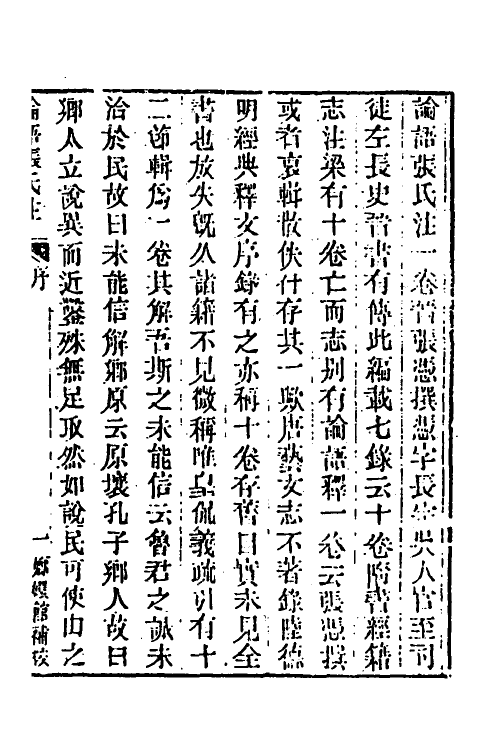 論語張氏注一卷晉張憑撰憑字長宗吳人官至司
徒左長史晉書有傳此編載七錄云十卷隋書經籍
志注梁有十卷亡而志別有論語釋一卷云張憑撰
或者裒輯散佚什存其一歟唐藝文志不著錄陸德
明經典釋文序錄有之亦稱十卷存舊目實未見全
書也放失旣久諸籍不見徵稱唯皇侃義疏引有十
二節輯爲一卷其解吾斯之未能信云魯君之誠未
洽於民故曰未能信解鄉原云原壤孔子鄉人故曰
鄉人立說異而近鑿殊無足取然如說民可使由之
論語張氏注
序
一
嫏嬛館補校